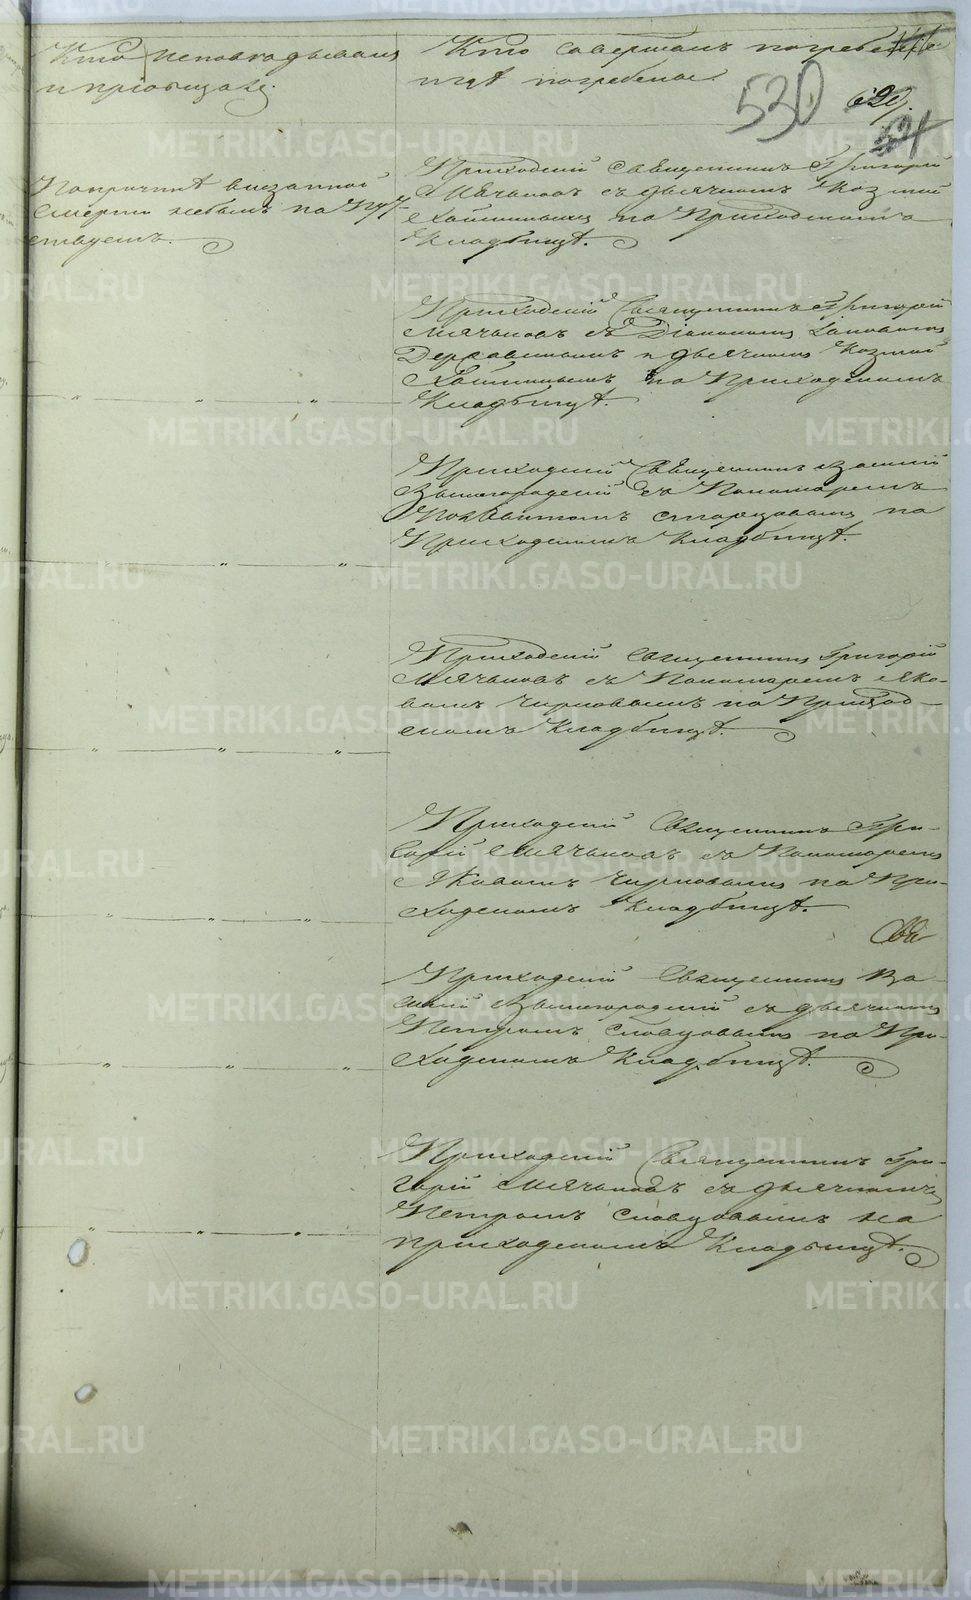 Кто исповѣдывалъ
и пріобщалъ.
Кто совершалъ погребеніе
и гдѣ погребены
530
629.
По причинѣ внезапной
смерти небылъ напут-
ствуемъ.
Приходскій Священникъ Григорій
Мячковъ съ дьячкомъ Козмою
на Приходскомъ
Кладбищѣ.
Приходскій Священникъ Григорій
Мячковъ съ Діакономъ
и дьячкомъ Козмою
на Приходскомъ
Кладбищѣ.
Приходскій Священникъ Василій
Вышегородскій съ Пономаремъ
на
Приходскомъ Кладбищѣ.
Приходскій Священникъ Григорій
Мячковъ съ Пономаремъ Яко-
вомъ Чирковымъ на Приход-
скомъ Кладбищѣ.
Приходскій Священникъ Гри-
горій Мячковъ съ Пономаремъ
Яковомъ Чирковымъ на При-
ходскомъ Кладбищѣ.
Приходскій Священникъ Ва-
силій Вышегородскій съ дьячкомъ
Петромъ Словцовымъ на При-
ходскомъ Кладбищѣ.
Приходскій Священникъ Гри-
горій Мячковъ съ дьячкомъ
Петромъ Словцовымъ на
приходскомъ Кладбищѣ.
METRIKI.GASO-URAL.RU